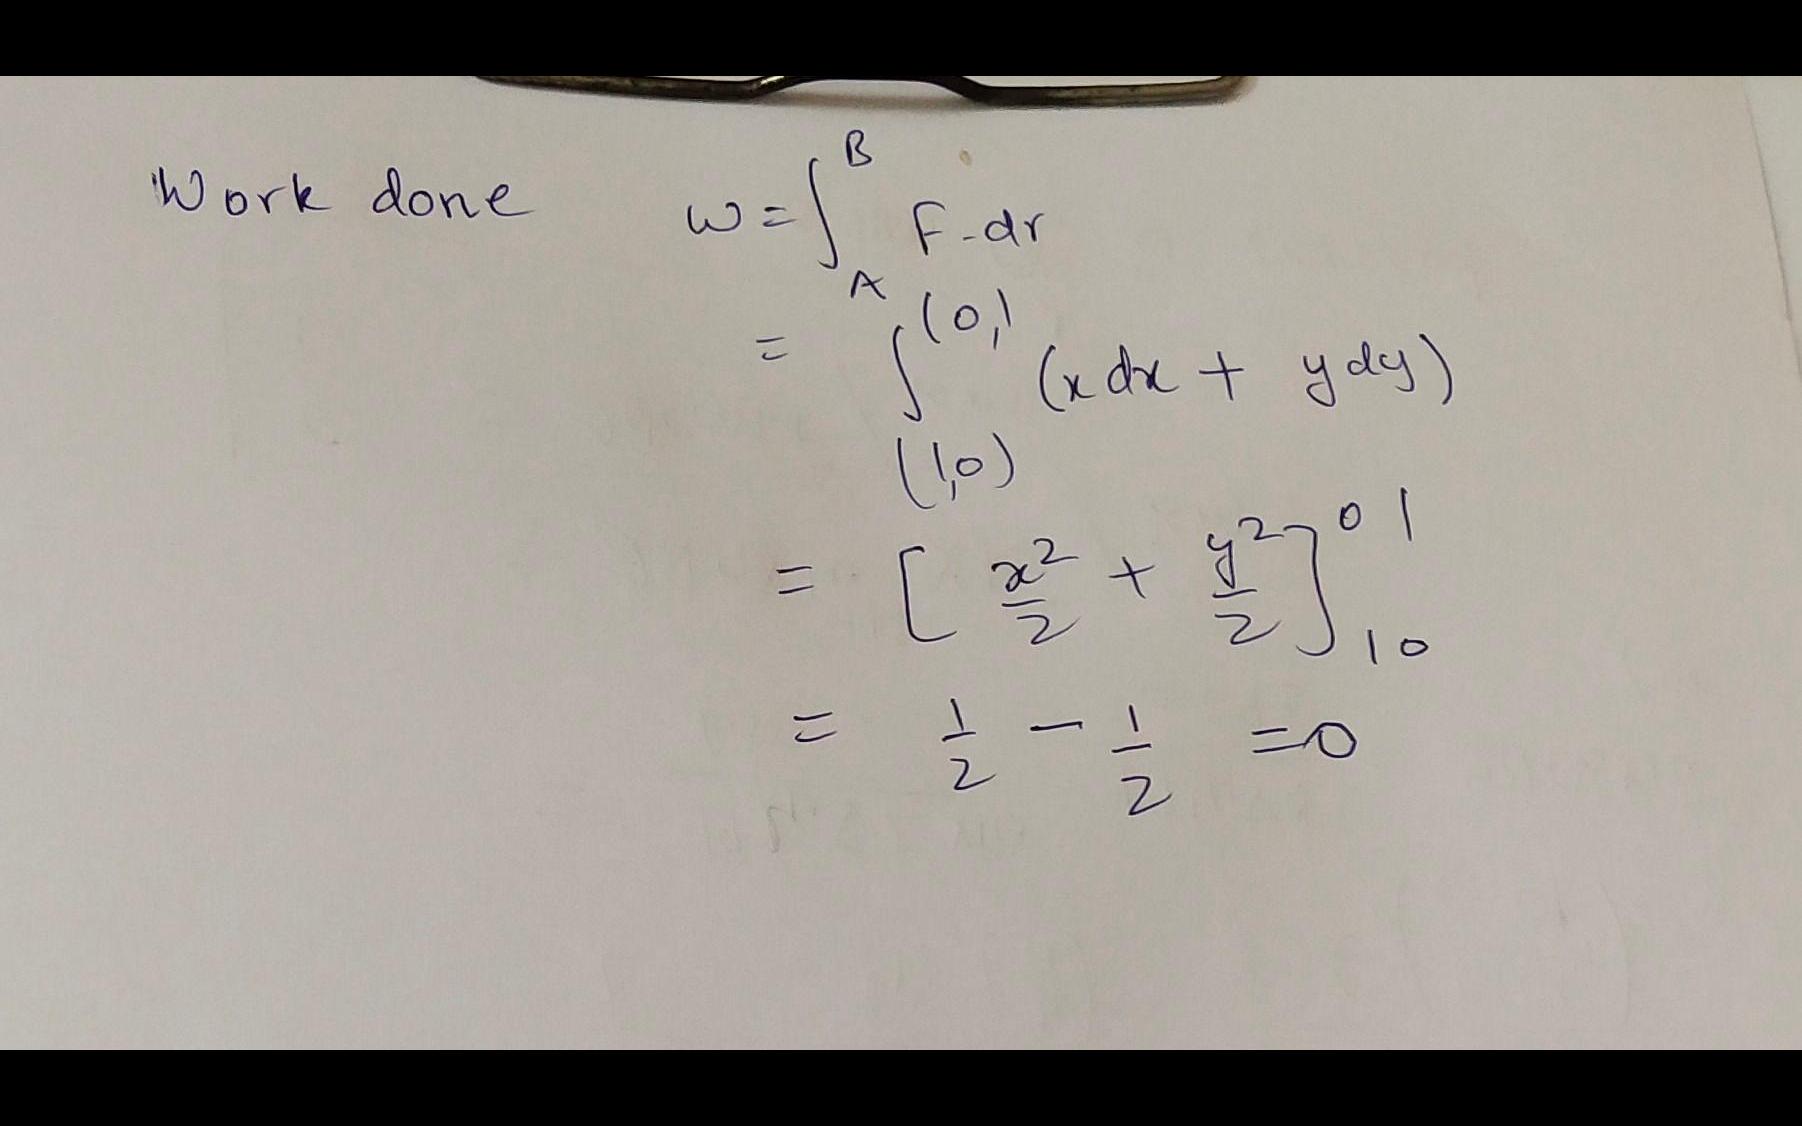 Work done w = ∫_A^B F-dr
= ∫_(1,0)^(0,1 (x dx + y dy)
= [ x²/2 + y²/2 ]_1 0^0 1
= 1/2 - 1/2 = 0